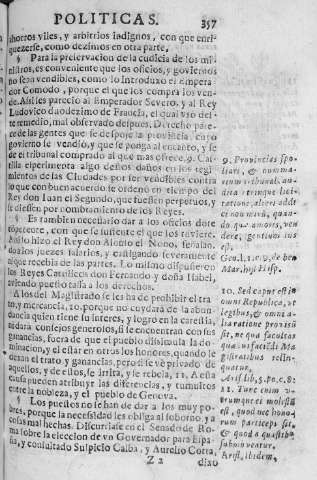 POLITICAS. 357
ahorros viles, y arbitrios indignos, con que enri-
quezerse, como dezimos en otra parte.
¶ Para la preservacion de la cudicia de los mi-
nistros, es conveniente que los oficios, y goviernos
no sean vendibles, como lo introduxo el Empera-
dor Comodo, porque el que los compra los ven-
de. Assi les pareciò al Emperador Severo, y al Rey
Ludovico duodezimo de Francia, el qual usò des-
te remedio, mal observado despues. Derecho pare-
ce de las gentes que se despoje la provincia, cuyo
govierno se vendiò, y que se ponga al encanto, y se
dè el tribunal comprado al que mas ofrece. 9. Cas-
tilla experimenta algo destos daños en los regi-
mientos de las Ciudades por ser vendibles, contra
lo que con buen acuerdo se ordenò en tiempo del
Rey don Iuan el Segundo, que fuessen perpetuos, y
se diessen por nombramiento de los Reyes.
¶ Es tambien necessario dar a los oficios dote
competente, con que se sustente el que los sirviere.
Assi lo hizo el Rey don Alonso el Nono, señalan-
do a los juezes salarios, y castigando severamente
al que recebia de las partes. Lo mismo dispusieron
los Reyes Catolicos don Fernando y doña Isabel,
aviendo puesto tassa a los derechos.
¶ A los del Magistrado se les ha de prohibir el tra-
to y mercancia, 10. porque no cuydarà de la abun-
dancia quien tiene su interes, y logro en la carestia,
ni darà consejos generosos, si se encuentran con sus
ganancias, fuera de que el pueblo dissimula la do-
minacion, y el estar en otros los honores, quando le
dexan el trato y ganancias, pero si se vè privado de
aquellos, y de ellos, se irrita, y se rebela, 11. A esta
causa pueden atribuyr las diferencias, y tumultos
entre la nobleza, y el pueblo de Genova.
¶ Los puestos no se han de dar a los muy po-
bres, porque la necessidad les obliga al soborno, y a
cosas mal hechas. Discurriase en el Senado de Ro-
ma sobre la eleccion de un Governador para Espa-
ña, y consultado Sulpicio Galba, y Aurelio Cotta,
Z 2 dixo
9. Provincias spo-
liari, & numma-
rium tribunal, au-
dita utrimque lici-
tatione, alteri addi-
ci non mirū, quan-
do quæ emeris, ven-
dere, gentium ius
est.
10. Sed caput est in
omni Republica, ut
legibus, & omni a-
lia ratione provisū
sit, ne qua facultas
quæstus faciendi Ma-
gistratibus relin-
quatur.
Arist. lib. 5. po. c. 8.
11. Tunc enim u-
trumque ei molestū
est, quod nec hono-
rum particeps sit,
& quod à quæstibus
submoveatur.
Arist. ibidem.